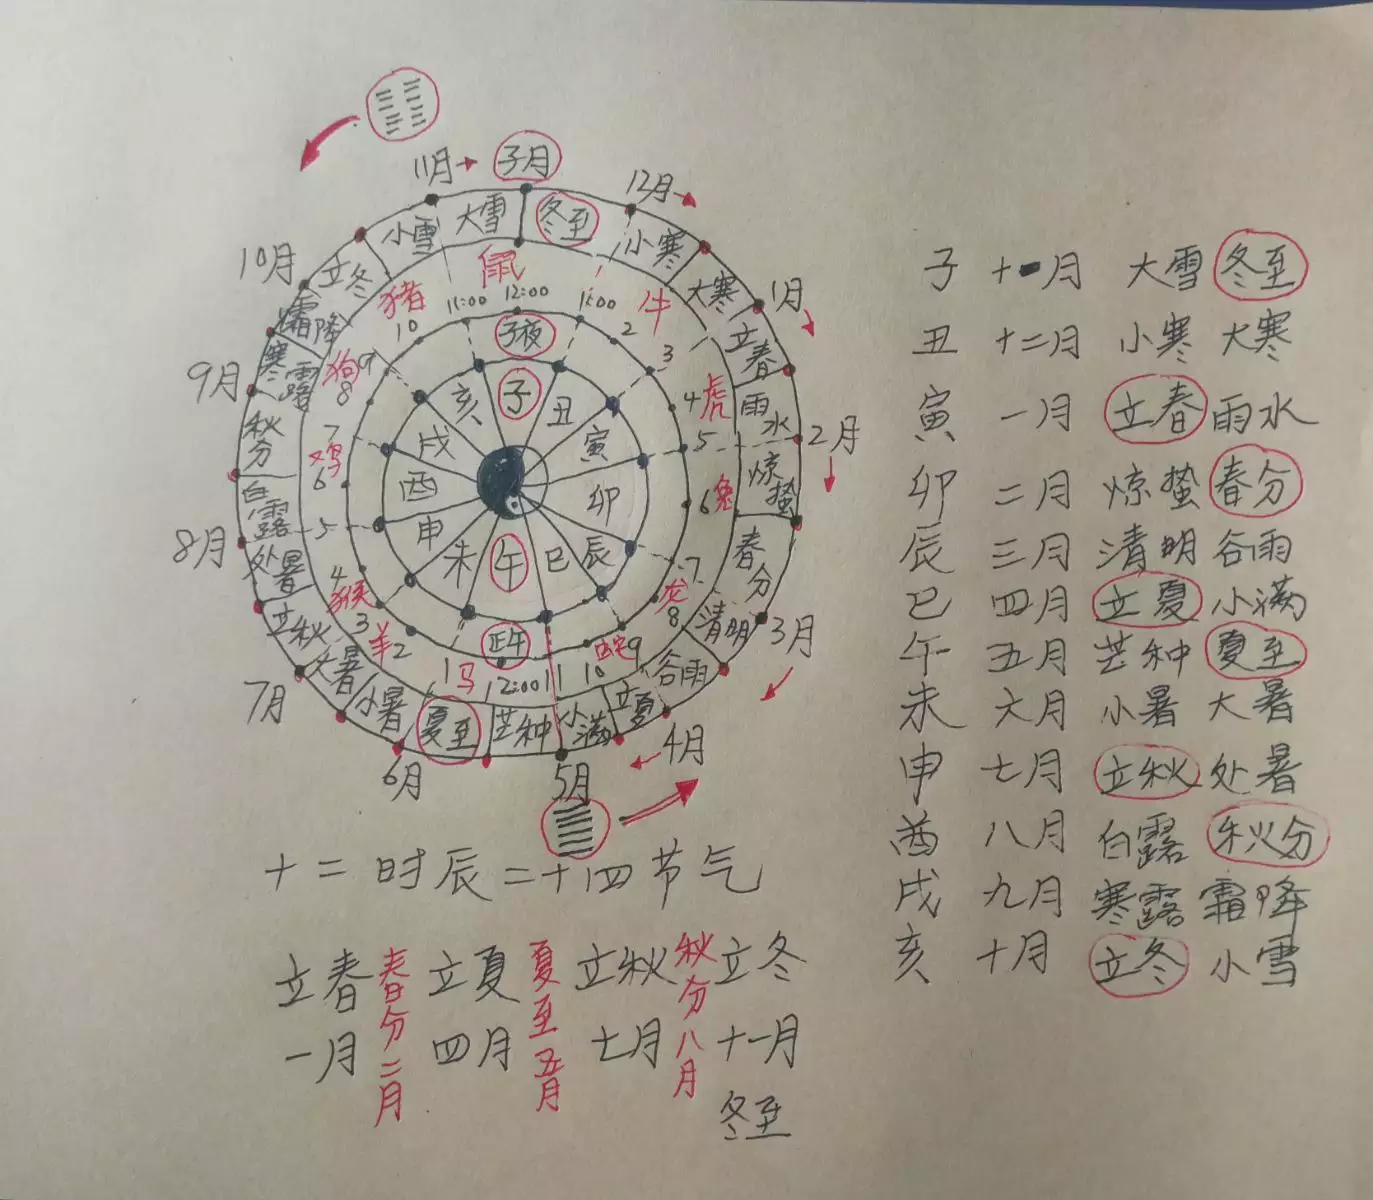 11月 子月 12月
1月
2月
3月
4月
5月
6月
7月
8月
9月
10月
大雪 冬至 小寒 大寒 立春 雨水 惊蛰 春分 清明 谷雨 立夏 小满 芒种 夏至 小暑 大暑 立秋 处暑 白露 秋分 寒露 霜降 立冬 小雪
鼠 牛 虎 兔 龙 蛇 马 羊 猴 鸡 狗 猪
11:00 12:00 1:00 2 3 4 5 6 7 8 9 10 11 12:00 1 2 3 4 5 6 7 8 9 10
子夜
正午
子 丑 寅 卯 辰 巳 午 未 申 酉 戌 亥
十二时辰二十四节气
立春 春分二月 立夏 夏至五月 立秋 秋分八月 立冬
一月 四月 七月 十一月
冬至
子 十一月 大雪 冬至
丑 十二月 小寒 大寒
寅 一月 立春 雨水
卯 二月 惊蛰 春分
辰 三月 清明 谷雨
巳 四月 立夏 小满
午 五月 芒种 夏至
未 六月 小暑 大暑
申 七月 立秋 处暑
酉 八月 白露 秋分
戌 九月 寒露 霜降
亥 十月 立冬 小雪